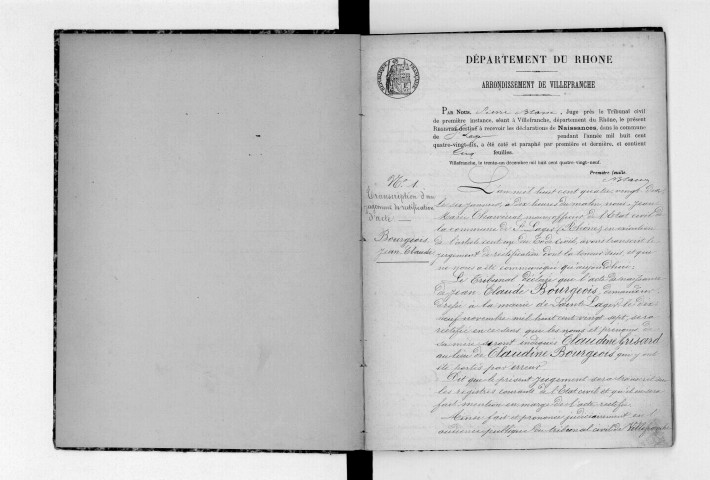 DÉPARTEMENT DU RHONE
ARRONDISSEMENT DE VILLEFRANCHE
PAR NOUS, Pierre, Juge près le Tribunal civil
de première instance, séant à Villefranche, département du Rhône, le présent
REGISTRE destiné à recevoir les déclarations de Naissances, dans la commune
de St Lager pendant l'année mil huit cent
quatre-vingt-dix, a été coté et paraphé par première et dernière, et contient
cinq feuilles.
Villefranche, le trente-un décembre mil huit cent quatre-vingt-neuf.
Première feuille.
No 1.
Transcription d'un
jugement de rectification
d'acte
Bourgeois
Jean Claude
L'an mil huit cent quatre vingt dix
le six janvier, à dix heures du matin nous, Jean
Marie, maire officier de l'Etat civil de
la commune de St Lager (Rhône), en exécution
de l'article cent un du Code civil, avons transcrit le
jugement de rectification dont la teneur suit et qui
nous a été communiqué aujourd'hui:
Le Tribunal déclare que l'acte de naissance
de Jean Claude Bourgeois, demandeur
dressé à la mairie de Saint Lager le dix
neuf novembre mil huit cent vingt sept, sera
rectifié en ce sens que les noms et prénoms de
sa mère seront indiqués Claudine Brisard
au lieu de Claudine Bourgeois qui y ont
été portés par erreur
Dit que le présent jugement sera transcrit sur
les registres courants de l'Etat civil et qu'il en sera
fait mention en marge de l'acte rectifié.
Ainsi fait et prononcé judiciairement en l'
audience publique du tribunal civil de Villefranche